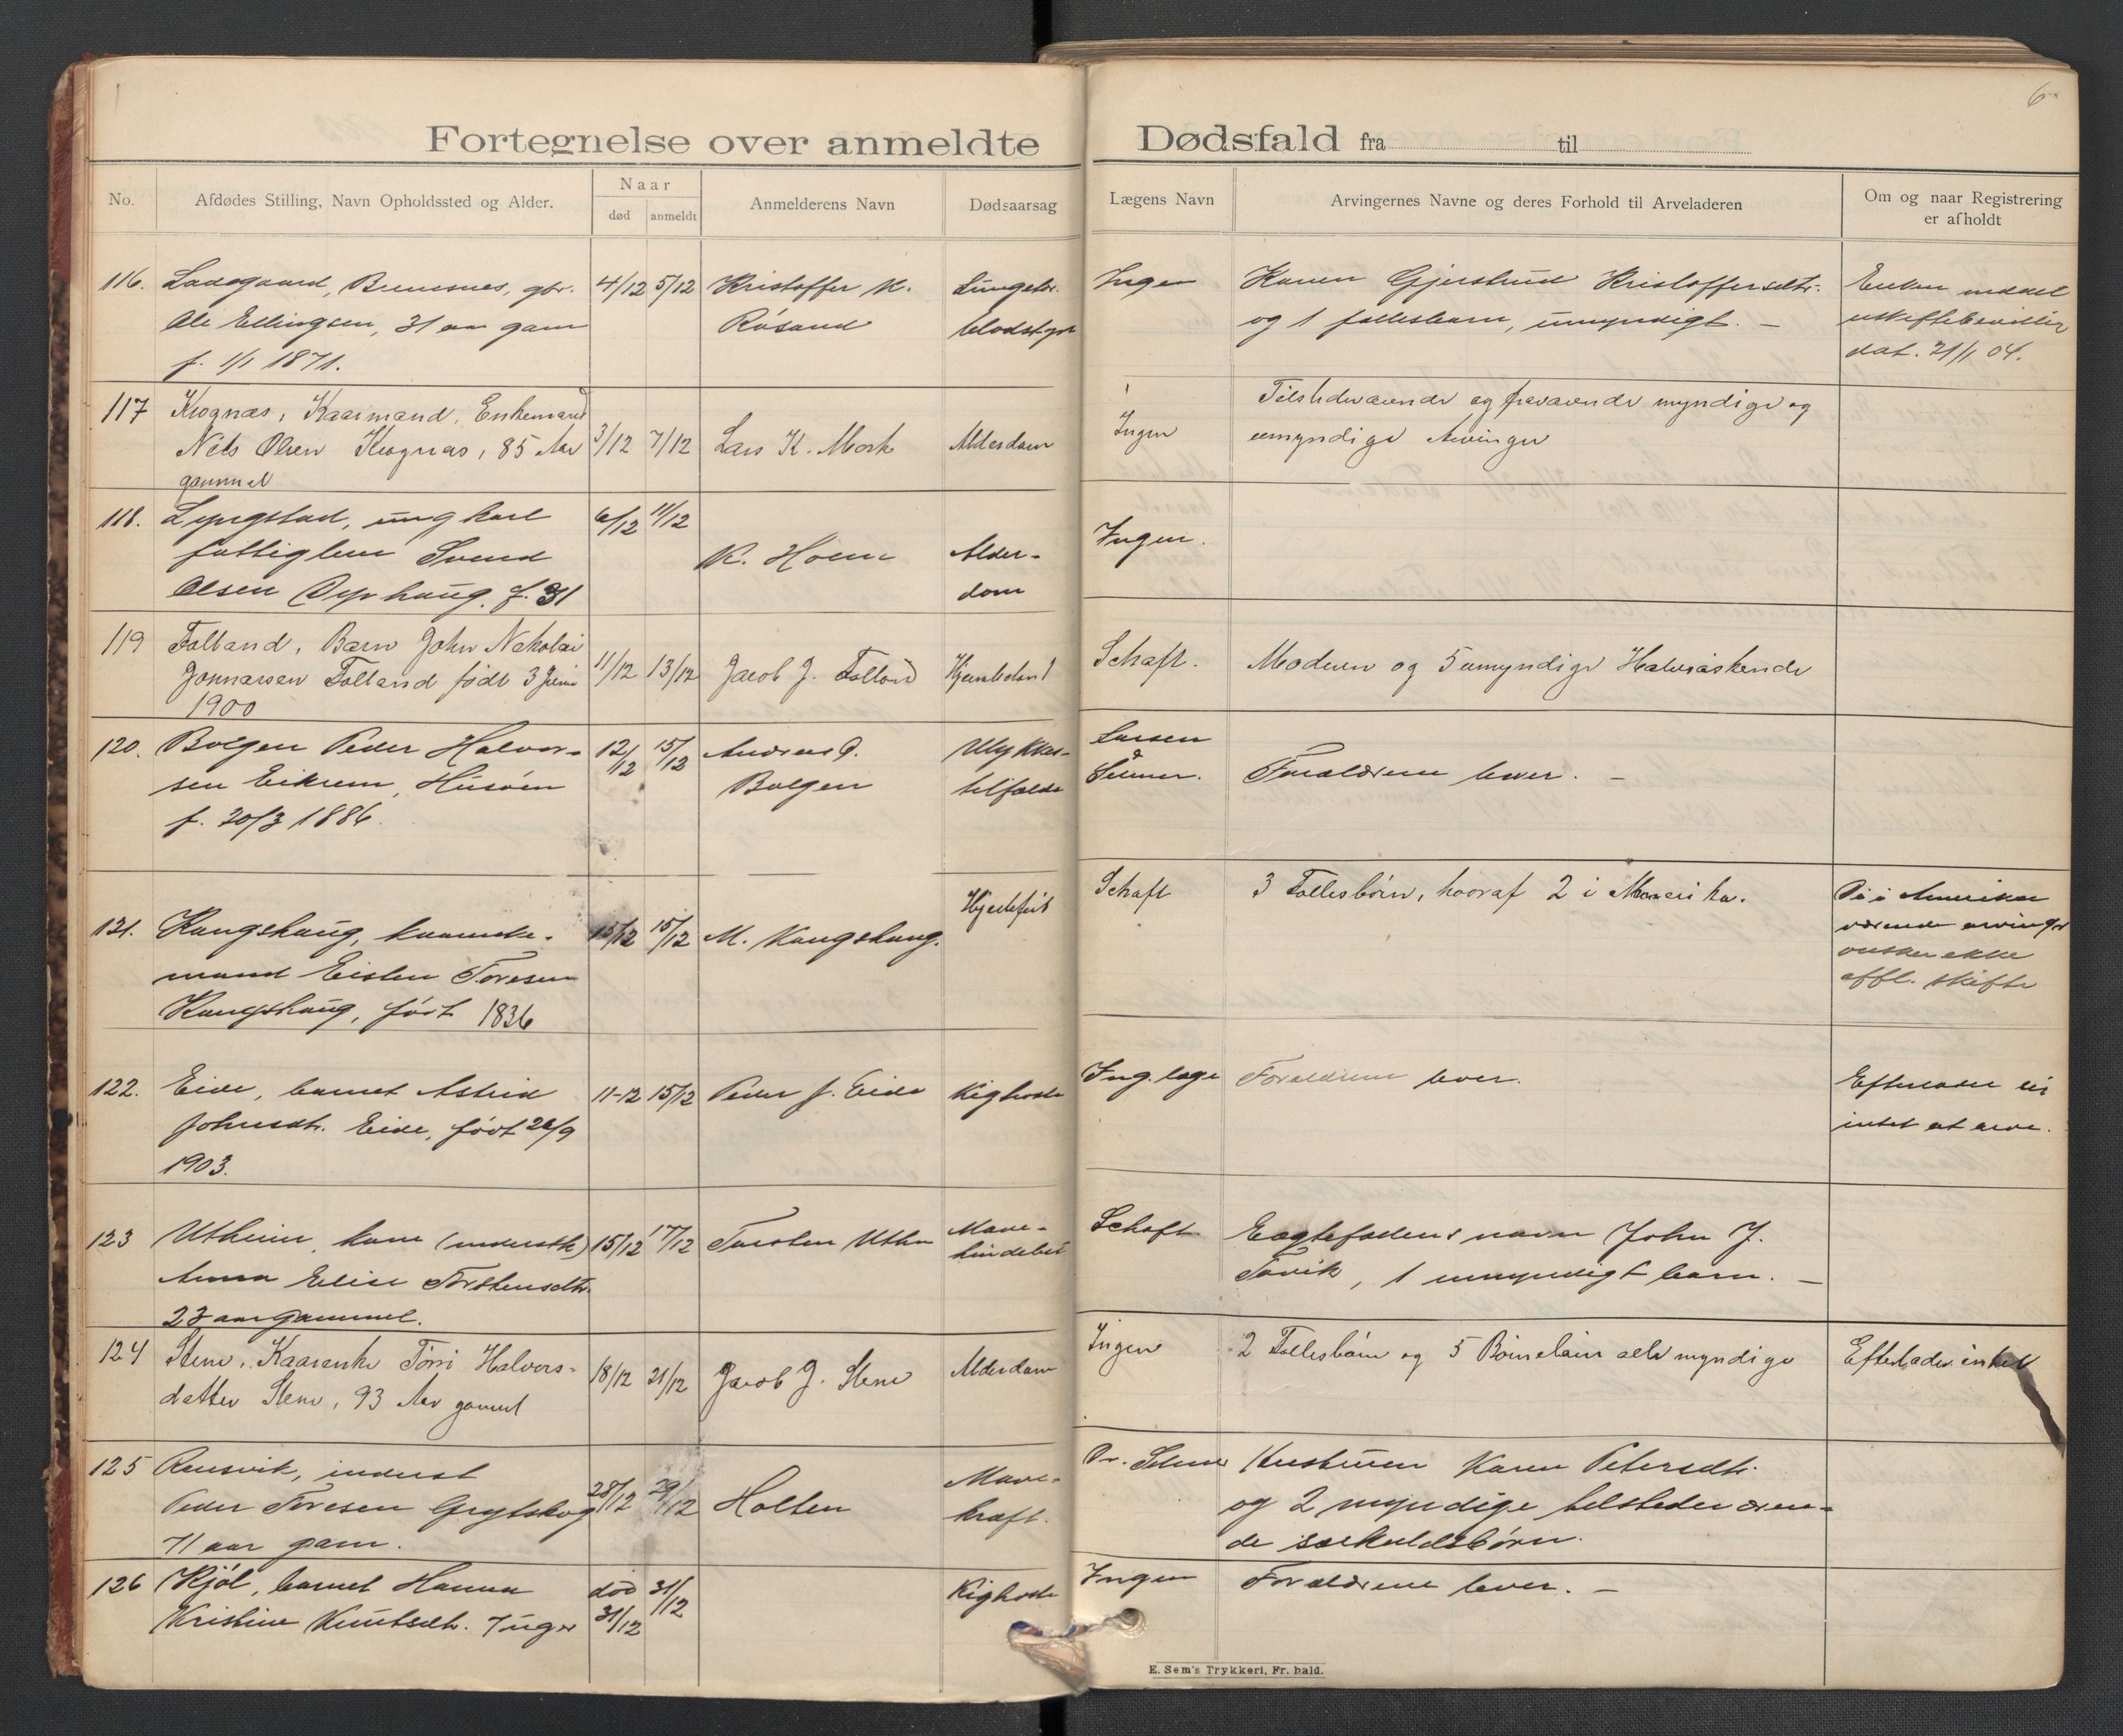 6
Fortegnelse over anmeldte Dødsfald fra til
No.
Afdødes Stilling, Navn Opholdssted og Alder.
Naar
død
anmeldt
Anmelderens Navn
Dødsaarsag
Lægens Navn
Arvingernes Navne og deres Forhold til Arveladeren
Om og naar Registrering
er afholdt
116. Ladegaard, Bremsnes, gbr. 4/12 5/12 Kristoffer K. Ingen Karen Gjertrud Kristoffersdtr.
Ole Ellingsen, 31 aar gam Røsand og 1 fællesbarn, umyndigt. — dat. 21/1 04.
f. 1/1 1871.
117 Kaarmand, Enkemand
Nils Olsen 85 Aar 3/12 7/12 Lars K. Mork Alderdom Ingen Tilstedeværende og fraværende myndige og
gammel umyndige Arvinger
118. Lyngstad, ungkarl 6/12 11/12 K. Holm Alder- Ingen.
fattiglem Svend dom
Olsen Dyrhaug. f. 31
119 Folland, Barn John Nekolai 11/12 13/12 Jacob J. Folland Schaft. Moderen og 5 umyndige Halvsøskende
Folland født 3 Juni
1900
120. Bolgen Peder Halvor- 12/12 15/12 Andreas P. Ulykkes- Larsen
sen Eikrem, Husøen Bolgen tilfælde & Selmer. Forældrene lever. —
f. 20/3 1886.
121. Kongshaug, kaarmand Eisten Toresen 15/12 15/12 M. Kongshaug. Hjertefeil Schaft 3 Fællesbørn, hvoraf 2 i Amerika. De i Amerika
Kongshaug, født 1836 værende arvinger
ønsker ekke
offl. skifte
122. Eide, barnet Astrid 11-12 15/12 Peder J. Eide Kighoste Ing. læge Forældrene lever. Efterlader sig
Johnsdtr. Eide, født 26/9 intet at arve.
1903.
123 Utheim, kone (inderste) 15/12 17/12 Torsten Uthm Mave- Schaft. Ægtefællens navn John J.
Anna Elise Torstensdtr. 1 umyndigt barn. —
23 aar gammel.
124 Stene, Kaarenke Halvors- 18/12 21/12 Jacob J. Stene Alderdom Ingen 2 Fællesbørn og 5 Børnebørn alle myndige Efterlader intet
datter Stene, 93 Aar gammel
125 Rensvik, inderst 28/12 29/12 Holten Mave- Dr. Selmer Hustruen Karen Petersdtr.
Peder Toresen Grytskog kræft. og 2 myndige tilstedeværen-
71 aar gam. de særkuldsbørn.
126 Kjøl, barnet Hanna død 31/12 31/12 Kighoste Ingen Forældrene lever. —
Kristine Knutsdtr. 7 uger
E. Sem's Trykkeri, Fr. hald.